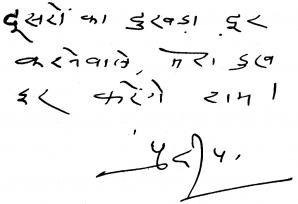 दूसरों का दुखड़ा दूर
करनेवाले, मेरा दुख
दूर करेंगे राम।
प्रदीप.